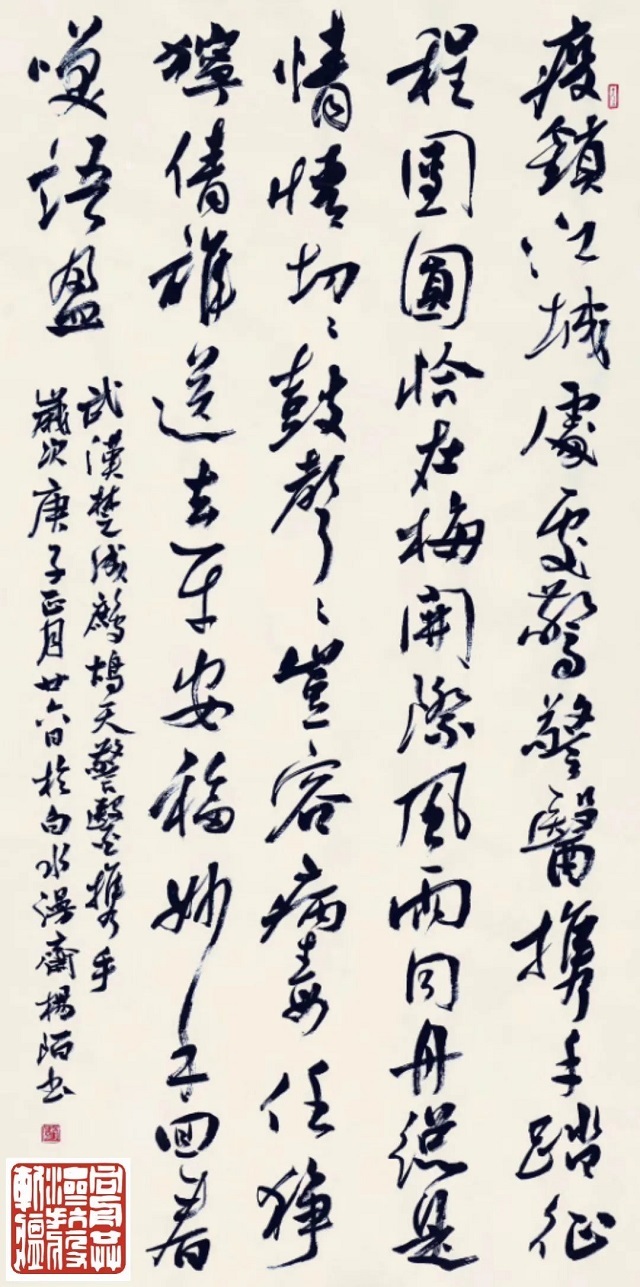 疫鎖江城處處驚警醫攜手踏征
程團圓恰在梅開際風雨同舟總是
情情切〻鼓聲〻豈容病毒任猙
獰倩誰送去平安福妙手回春
咲語盈
武漢楚成鷓鴣天警醫攜手
歲次庚子正月廿六日於白水漫齋楊陌書